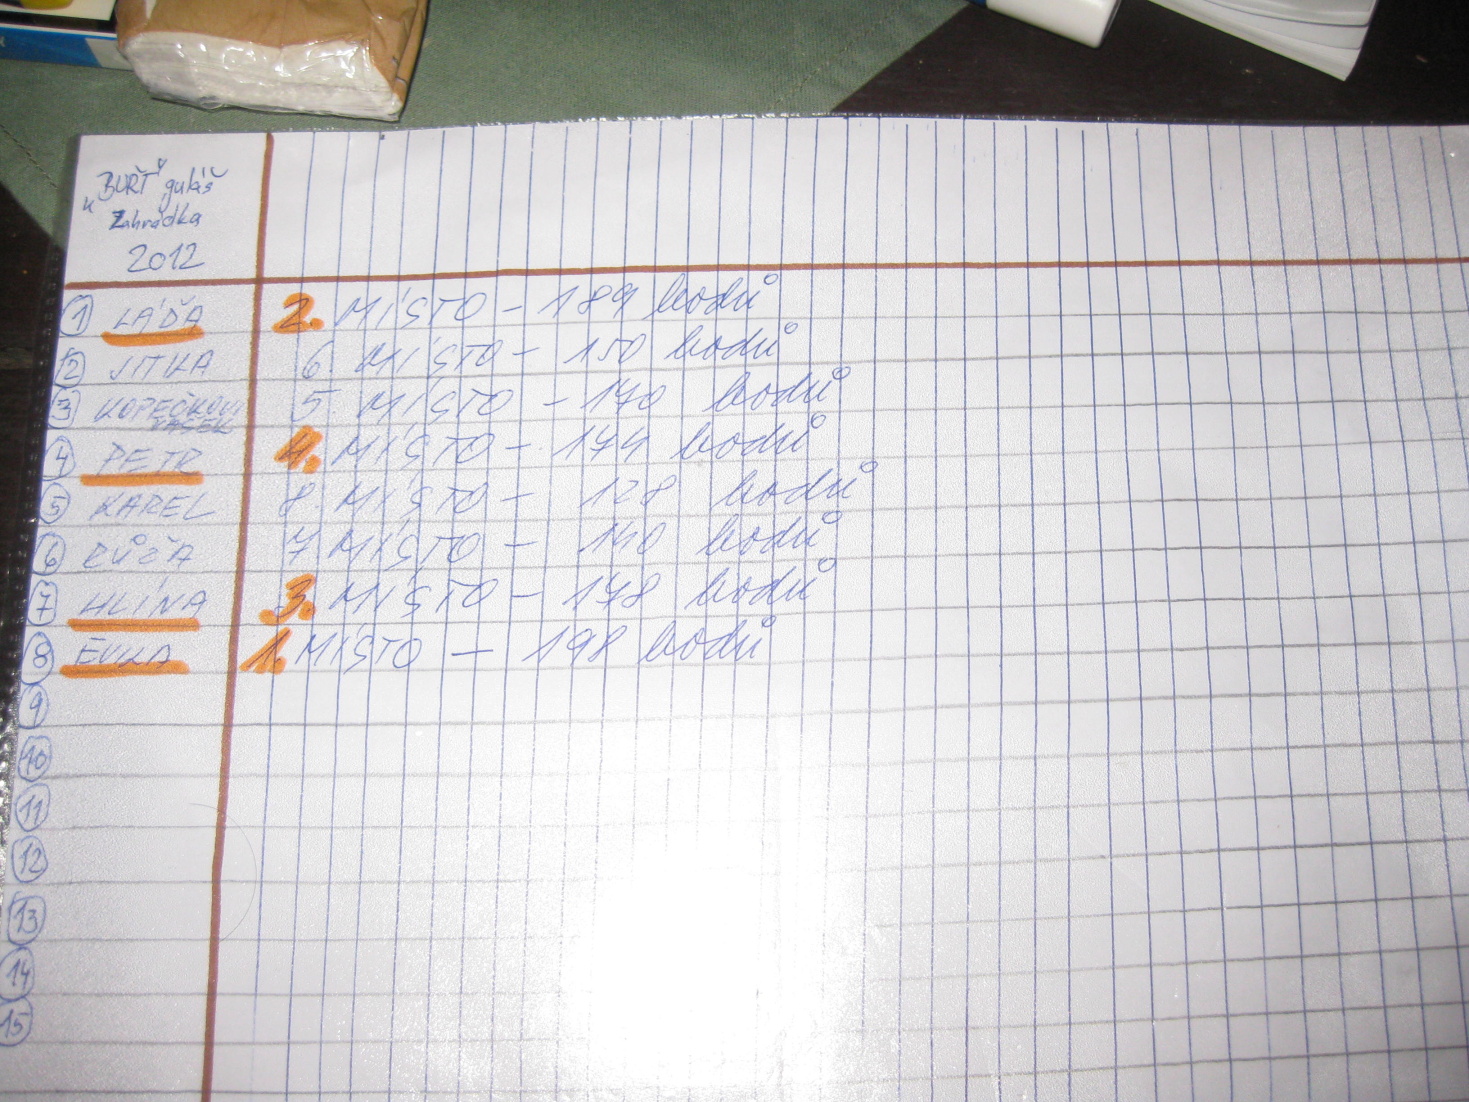 "BUŘT" guláš
Zahrádka
2012
1 LÁĎA 2. MÍSTO - 189 bodů
2 JITKA 6. MÍSTO - 150 bodů
3 KOPEČKOVI 5. MÍSTO - 170 bodů
VAŠEK
4 PETR 4. MÍSTO - 174 bodů
5 KAREL 8. MÍSTO - 128 bodů
6 RŮŽA 7 MÍSTO - 140 bodů
7 HLÍNA 3. MÍSTO - 178 bodů
8 EVKA 1. MÍSTO - 198 bodů
9
10
11
12
13
14
15